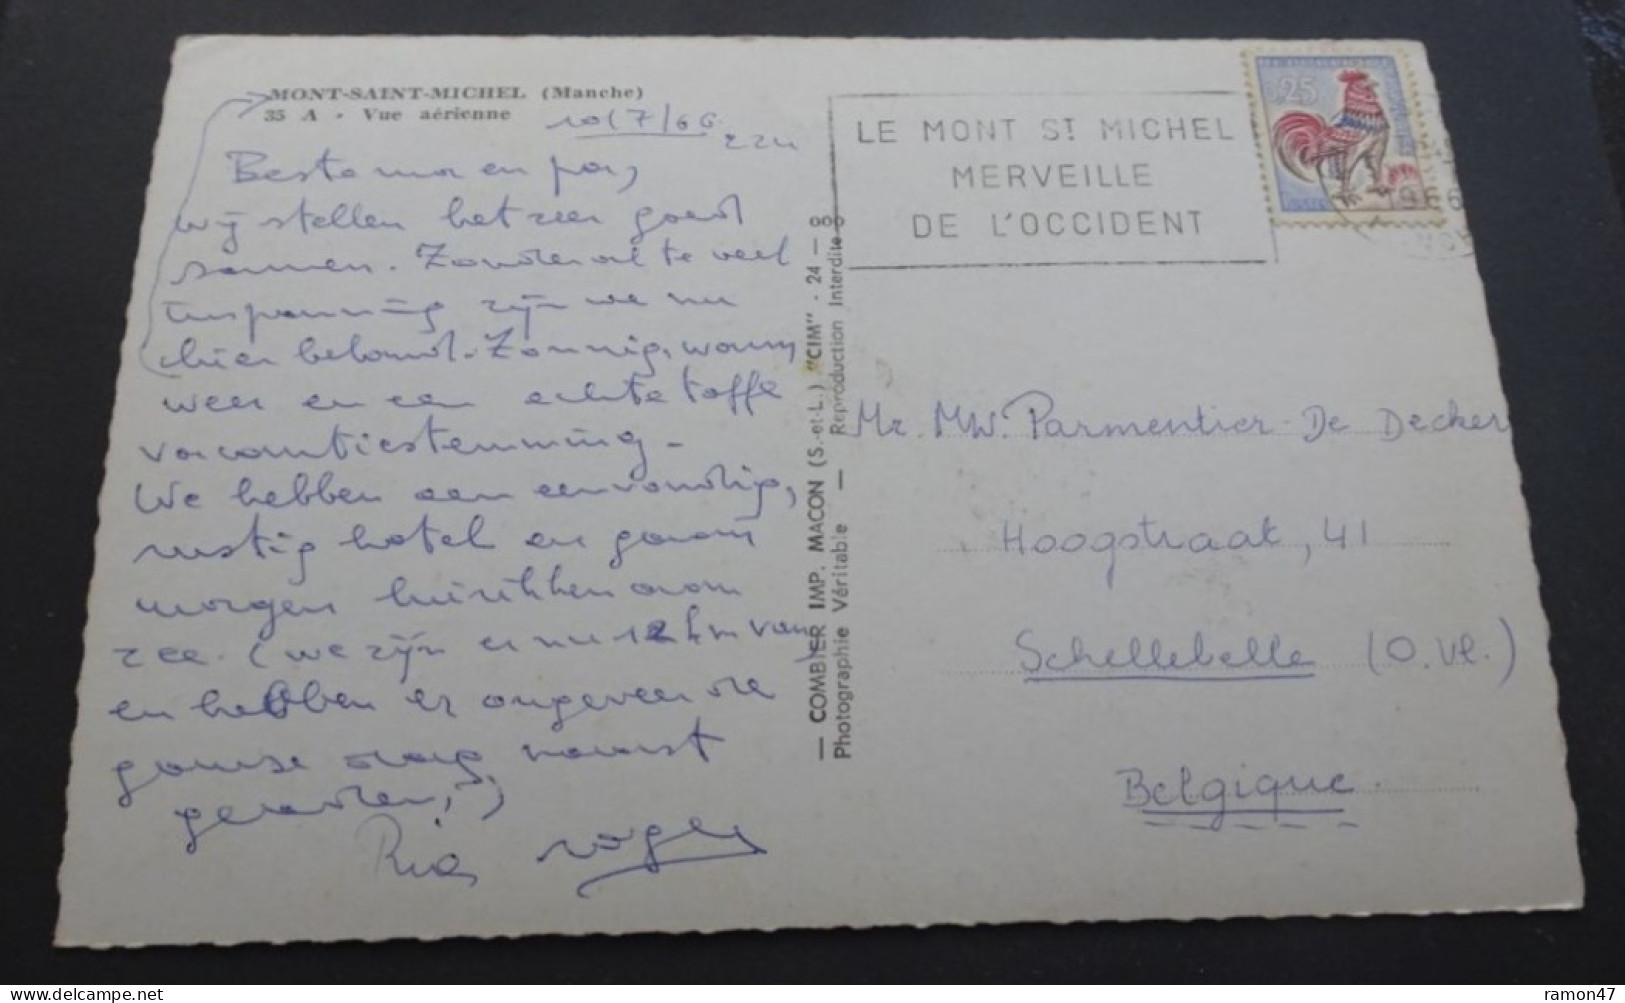 MONT-SAINT-MICHEL (Manche)
35 A - Vue aérienne
10/7/66
22u
Beste ma en pa,
wij stellen het zeer goed
samen. Zonder al te veel
inspanning zijn we nu
hier beland. Zonnig, warm
weer en een echte toffe
vacantiestemming -
We hebben een eenvoudig,
rustig hotel en gaan
morgen hier
zee. (we zijn er nu 12 km van,
en hebben er ongeveer de
ganse dag naast
gereden,)
Ria Roger
— COMBIER IMP. MACON (S.-et-L.) "CIM" - 24 - 8
Photographie Véritable — Reproduction Interdite
LE MONT ST MICHEL
MERVEILLE
DE L'OCCIDENT
0,25
1966
Mr. MW. Parmentier-De Decker
Hoogstraat, 41
Schellebelle (O.Vl.)
Belgique.
ramon47